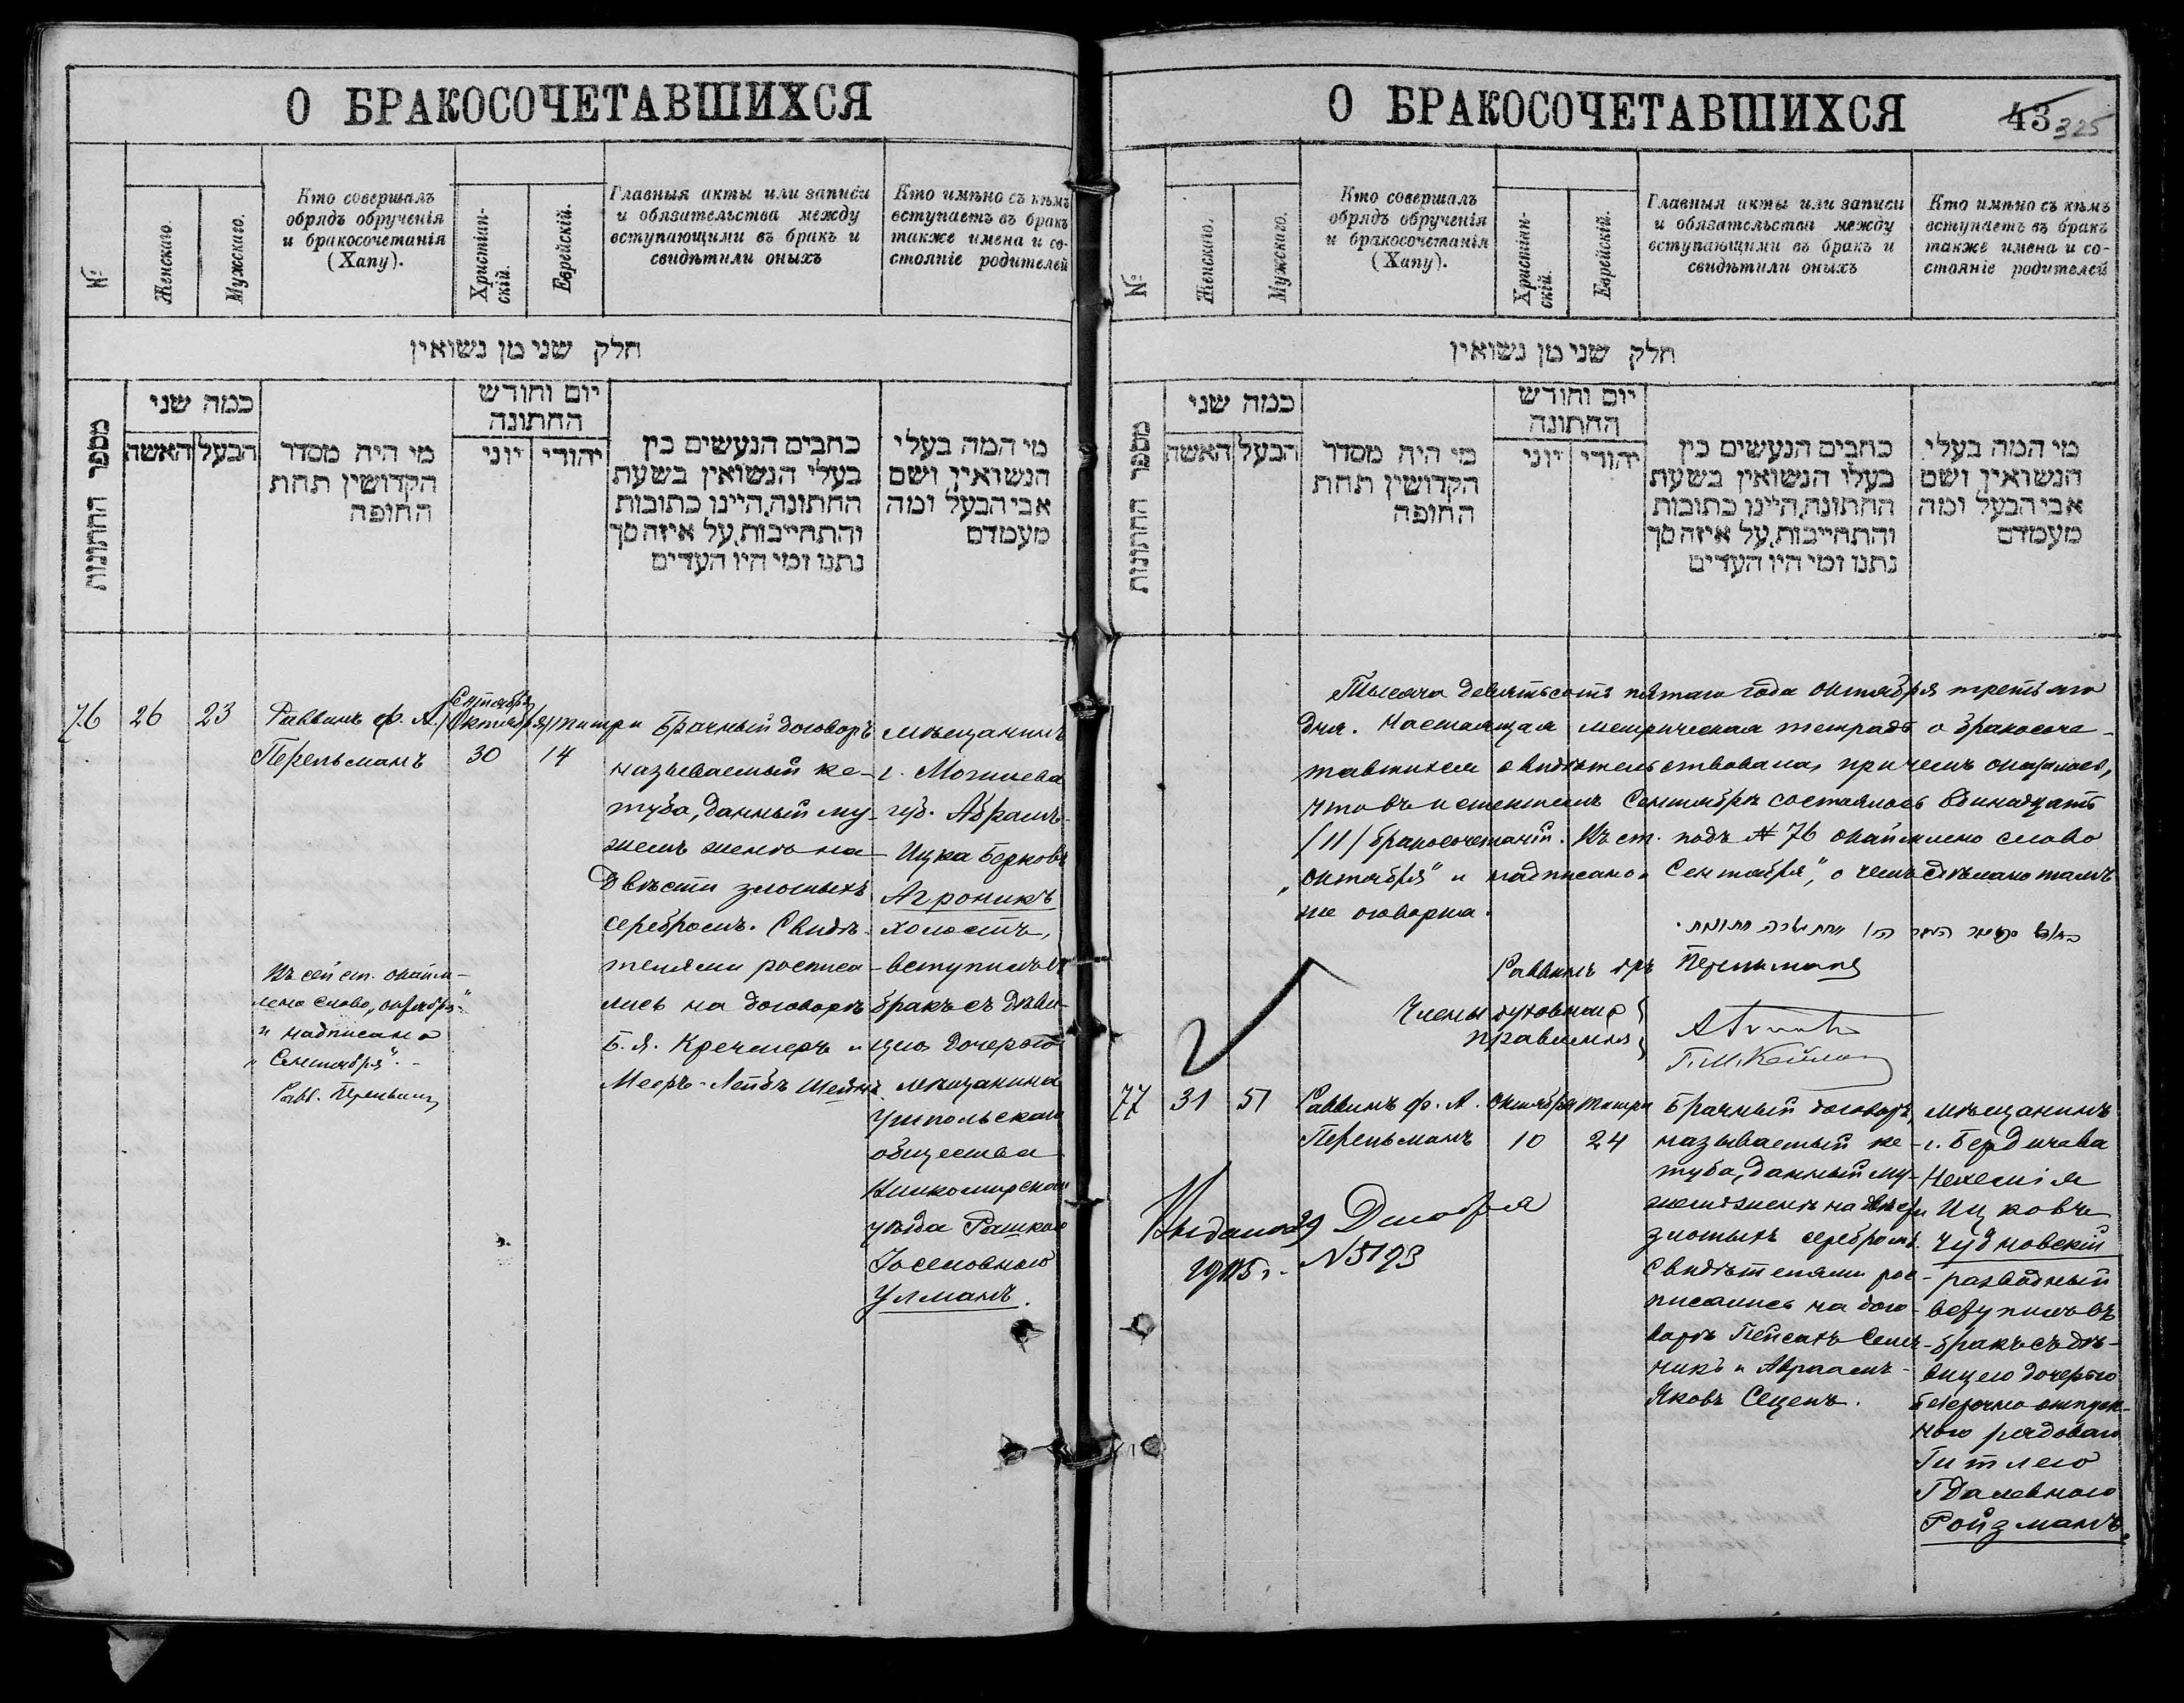 О БРАКОСОЧЕТАВШИХСЯ
№
Женскаго.
Мужескаго.
Кто совершалъ
обрядъ обрученія
и бракосочетанія
(Хапу).
Христіан-
скій.
Еврейскій.
Главныя акты или записи
и обязательства между
вступающими въ бракъ и
свидѣтили оныхъ
Кто имѣно съ кѣмъ
вступаетъ въ бракъ
также имена и со-
стояніе родителей
חלק שני מן נשואין
מספר החתונות
כמה שני
האשה
הבעל
מי היה מסדר
הקדושין תחת
החופה
יום וחודש
החתונה
יוני
יהודי
כתבים הנעשים בין
בעלי הנשואין בשעת
החתונה, היינו כתובות
והתחייבות, על איזה סך
נתנו ומי היו העדים
מי המה בעלי
הנשואין ושם
אבי הבעל ומה
מעמדם
76
26
23
Раввинъ Ф. А.
Перельманъ
Сентября
/Октября/
30
тишри
14
Брачный договоръ
называемый ке-
туба, данный му-
жемъ женѣ на
двѣсти злотыхъ
серебромъ. Свидѣ-
телями росписа-
лись на договорѣ
Б. Я. Кремеръ и
Мееръ-Лейбъ
мѣщанинъ
г. Могилева
губ. Абрамъ-
Ицка Берковъ
Агроникъ
холостъ,
вступилъ въ
бракъ съ дѣви-
цею дочерью
мѣщанина
общества
уѣзда Рашкою
Іоселовною
Улманъ.
Въ сей ст. окайм-
лено слово „октября“
и надписано
„Сентября“.
Равв. Перельманъ
О БРАКОСОЧЕТАВШИХСЯ
43 325
№
Женскаго.
Мужескаго.
Кто совершалъ
обрядъ обрученія
и бракосочетанія
(Хапу).
Христіан-
скій.
Еврейскій.
Главныя акты или записи
и обязательства между
вступающими въ бракъ и
свидѣтили оныхъ
Кто имѣно съ кѣмъ
вступаетъ въ бракъ
также имена и со-
стояніе родителей
חלק שני מן נשואין
מספר החתונות
כמה שני
האשה
הבעל
מי היה מסדר
הקדושין תחת
החופה
יום וחודש
החתונה
יוני
יהודי
כתבים הנעשים בין
בעלי הנשואין בשעת
החתונה, היינו כתובות
והתחייבות, על איזה סך
נתנו ומי היו העדים
מי המה בעלי
הנשואין ושם
אבי הבעל ומה
מעמדם
Тысяча девятьсотъ пятаго года октября третьяго
дня. Настоящая метрическая тетрадь о бракосоче-
тавшихся свидѣтельствована, при чемъ оказалось,
что въ истекшемъ Сентябрѣ состоялось одинадцать
/11/ бракосочетаній. Въ ст. подъ № 76 окаймлено слово
„октября“ и надписано „Сентября“, о чемъ сдѣлана тамъ
же оговорка.
Раввинъ Ф. Перельманъ
Члены духовнаго
правленія
77
31
51
Раввинъ Ф. А.
Перельманъ
Октября
10
Тишри
24
Брачный договоръ,
называемый ке-
туба, данный му-
жемъ женѣ на двѣсти
злотыхъ серебромъ.
Свидѣтелями рос-
писались на дого-
ворѣ Пейсахъ
и Авраамъ-
Яковъ
мѣщанинъ
г. Бердичева
Нехемія
Ицковъ
Чудновскій
разводный
вступилъ въ
бракъ съ дѣ-
вицею дочерью
безсрочно отпуск-
ного рядового
Гитлею
Гдалевною
Ройзманъ.
Выдано 29 Декабря
1915 г. № 5193